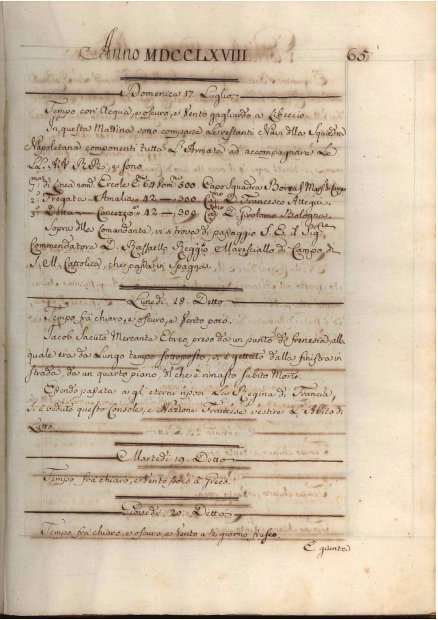 Anno MDCCLXVIII. 65
Domenica 17. Luglio.
Tempo con Acqua, e oscuro, e Vento gagliardo a Libeccio.
In questa Mattina sono comparse le restanti Navi della Squadra
Napoletana componenti tutta l'Armata ad accompagnare Le
LL: AA: RR:, e sono
di Linea nom. Ercole C. 64 Uom. 500 Capo Squadra
2. Fregata Amalia 12 — 300 D. Francesco
3. Detta Concezione 12 — 300 D. Girolomo Bologna.
Sopra della Comandante, vi si trova di passaggio S. E. il Sig.
Commendatore D. Raffaello Reggio Maresciallo di Campo di
S. M. Cattolica, che passa in Spagna.
Lunedì 18. Detto.
Tempo frà chiaro, e oscuro, e Vento poco.
Jacob Sacuto Mercante Ebreo preso da un punto di frenesia, alla
quale era da Lungo tempo sottoposto, si è gettato dalla finestra in
strada, da un quarto piano di che è rimasto subito Morto.
Essendo passata a gl'eterni riposi La Regina di Francia,
si è veduto questo Console, e Nazione Francese vestire L'Abito di
Lutto.
Martedì 19. Detto
Tempo frà chiaro, e Vento poco a Greco.
Giovedì 20. Detto
Tempo frà chiaro, e oscuro, e Vento a ½ giorno fresco.
E giunta